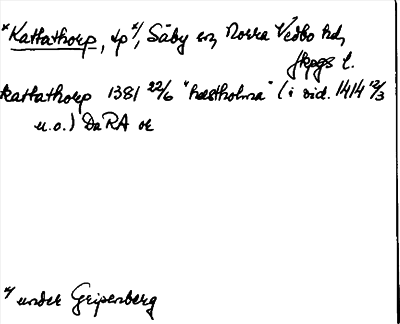 *Kattathorp, sp */, Säby sn, Norra Vedbo hd,
Jkpgs l.
kattathorp 1381 22/6 "hæstholma" (i vid. 1414 12/3
u.o.) DaRA or
*/ under Gripenberg